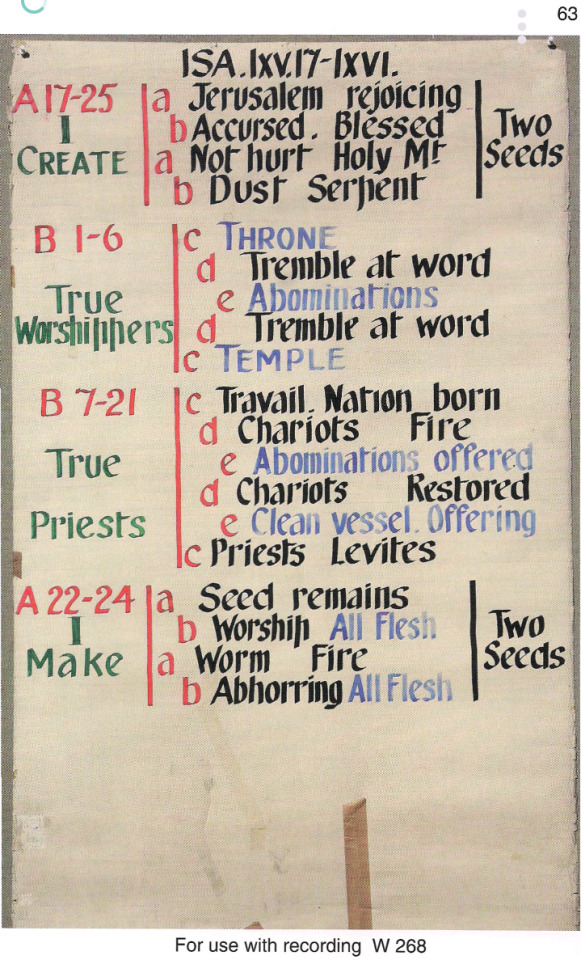 63
ISA.lxv.17-lxvi.
A 17-25 a Jerusalem rejoicing
I b Accursed. Blessed Two
CREATE a Not hurt Holy Mt Seeds
b Dust Serpent
B 1-6 c THRONE
d Tremble at word
True e Abominations
Worshippers d Tremble at word
c TEMPLE
B 7-21 c Travail. Nation born
d Chariots Fire
True e Abominations offered
d Chariots Restored
Priests e Clean vessel. Offering
c Priests Levites
A 22-24 a Seed remains
I b Worship All Flesh Two
Make a Worm Fire Seeds
b Abhorring All Flesh
For use with recording W 268